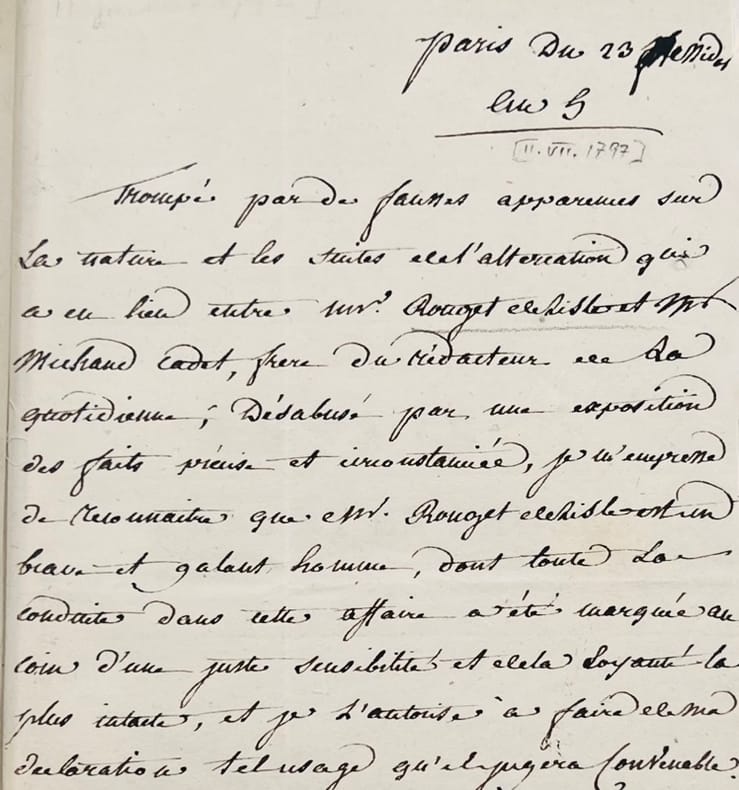 Paris Du 23 Messidor
An 5
[11. VII. 1797]
Trompé par de fausses apparences sur
La nature et les suites de l'altercation qui
a eu lieu entre Mr. Rouget de Lisle et Mr
Michaud cadet, frere du rédacteur de La
quotidienne ; Désabusé par une exposition
des faits précise et circonstanciée, je m'empresse
de reconnaitre que Mr. Rouget de Lisle est un
brave et galant homme, dont toute La
conduite dans cette affaire a été marquée au
coin d'une juste sensibilité et de la Loyauté la
plus intacte, et je L'autorise a faire de ma
declaration tel usage qu'il jugera Convenable.